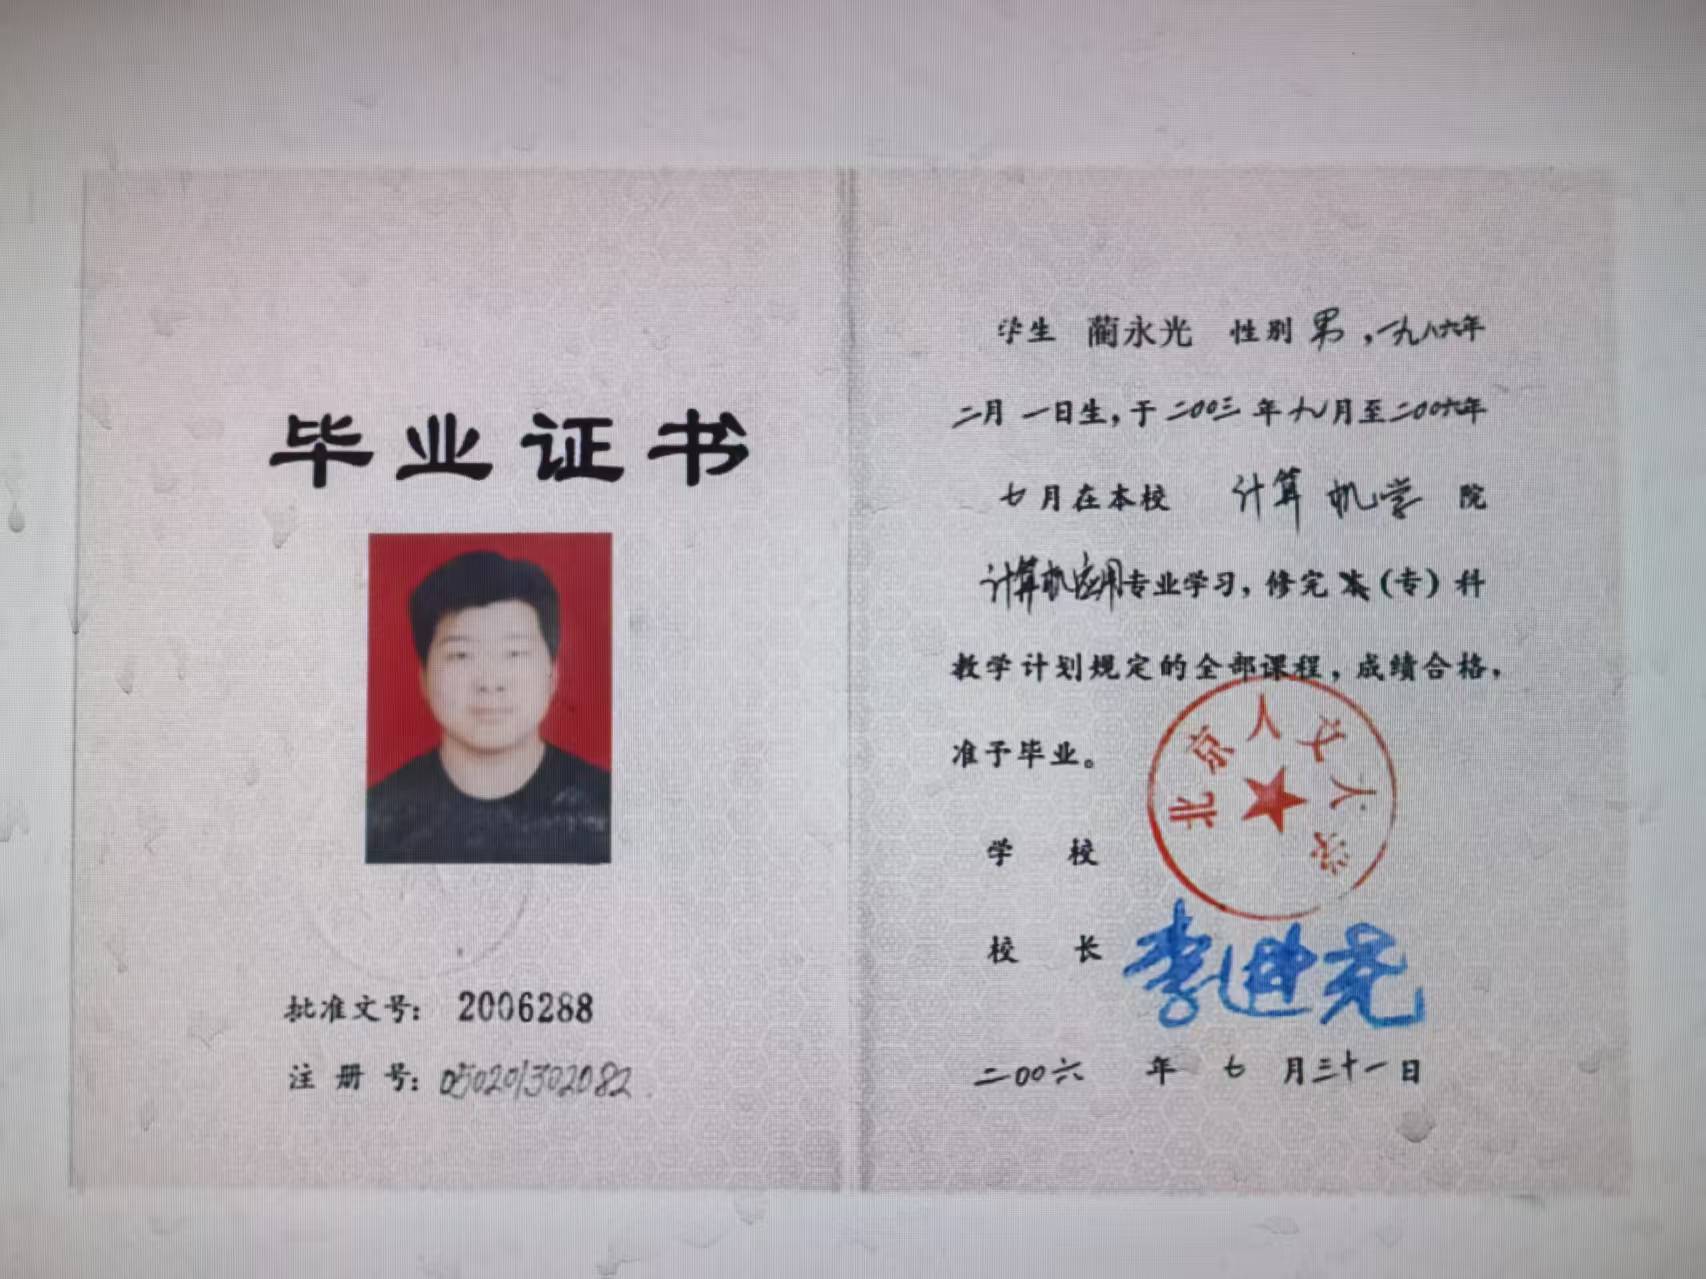 毕业证书
批准文号： 2006288
注 册 号： 050201302082.
学生 蔺永光 性别 男，一九八六年
二月 一日生，于 二00三 年 九月至二00六年
七月在本校 计算机学 院
计算机应用专业学习，修完 本（专）科
教学计划规定的全部课程，成绩合格，
准予毕业。
北京人文大学
学 校
校 长 李进尧
二00六 年 七 月三十一日